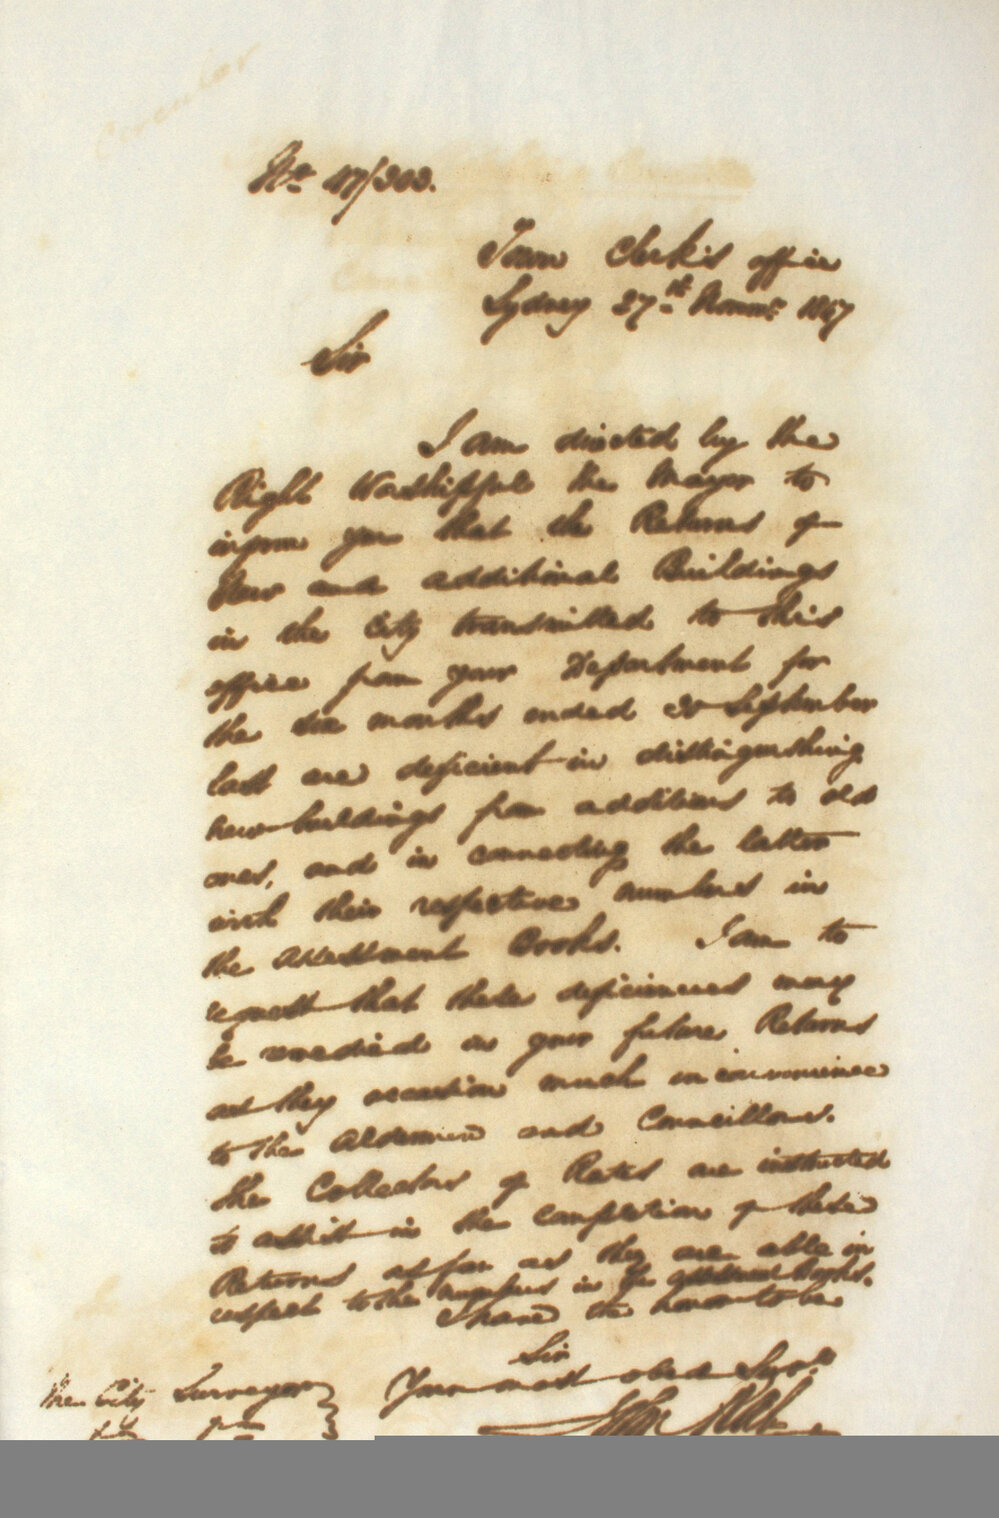 Circular
No. 47/303.
Town Clerk's office
Sydney 27th Novemr. 1847
Sir
I am directed by the
Right Worshipful the Mayor to
inform you that the Returns of
New and additional Buildings
in the City transmitted to this
office from your Department for
the six months ended 30 September
last are deficient in distinguishing
new buildings from additions to old
ones, and in connecting the latter
with their respective numbers in
the Assessment Books. I am to
request that these deficiencies may
be remedied in your future Returns
as they occasion much inconvenience
to the Aldermen and Councillors.
The Collectors of Rates are instructed
to assist in the completion of these
Returns as far as they are able in
respect to the numbers in the assessment Books.
I have the honor to be
Sir
Your most obed Servt.
The City Surveyor